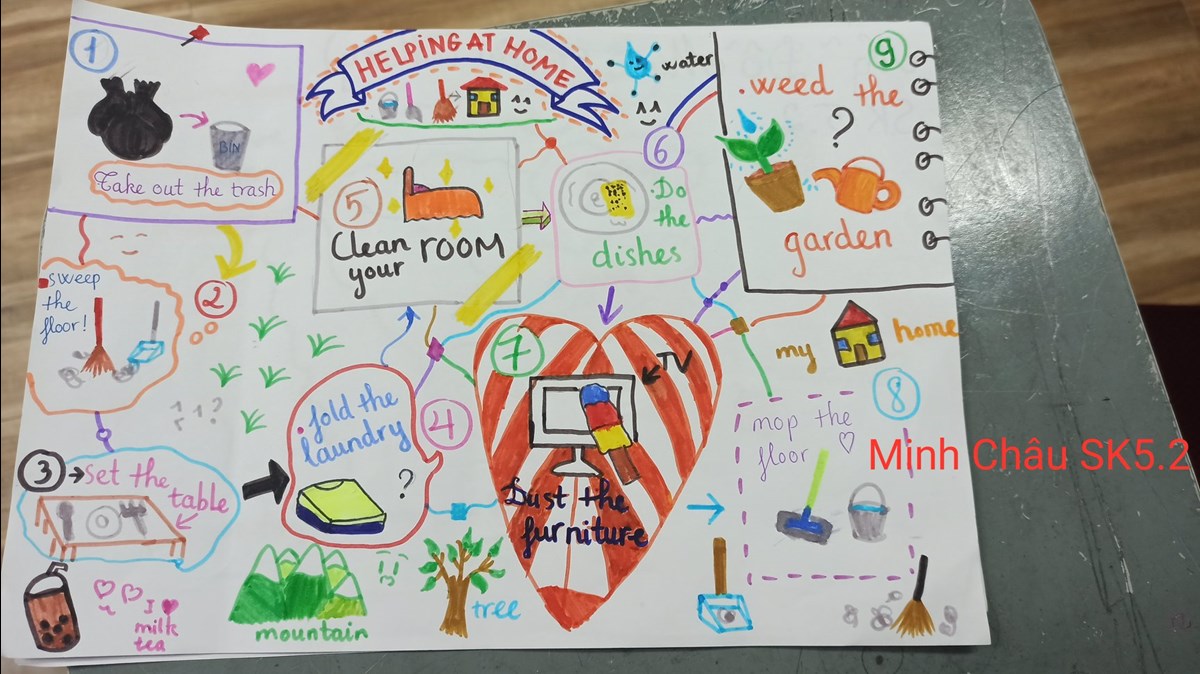 HELPING AT HOME
1
BIN
Take out the trash
2
sweep
the
floor!
3
Set the
table
4
.fold the
laundry
?
5
Clean
your ROOM
6
Do
the
dishes
7
TV
Dust the
furniture
8
mop the
floor
9
.weed the
?
garden
water
my home
11?
I
milk
tea
mountain
tree
Minh Châu SK5.2